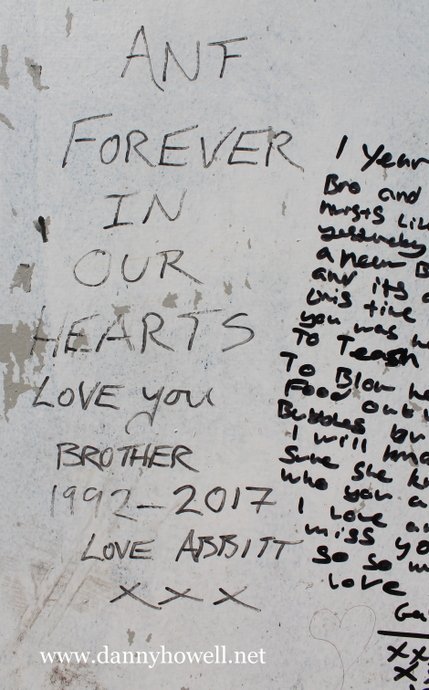 ANT
FOREVER
IN
OUR
HEARTS
LOVE you
BROTHER
1992-2017
LOVE ABBITT
xxx
1 Year
Bro and
hurts Lik
yesterday
a new B
and its
this time
you was h
To Teach
To Blow
Food out
Bubbles bu
I will ma
Sure she k
who you a
I Love a
miss yo
so so m
love
Ga
xx
x
www.dannyhowell.net